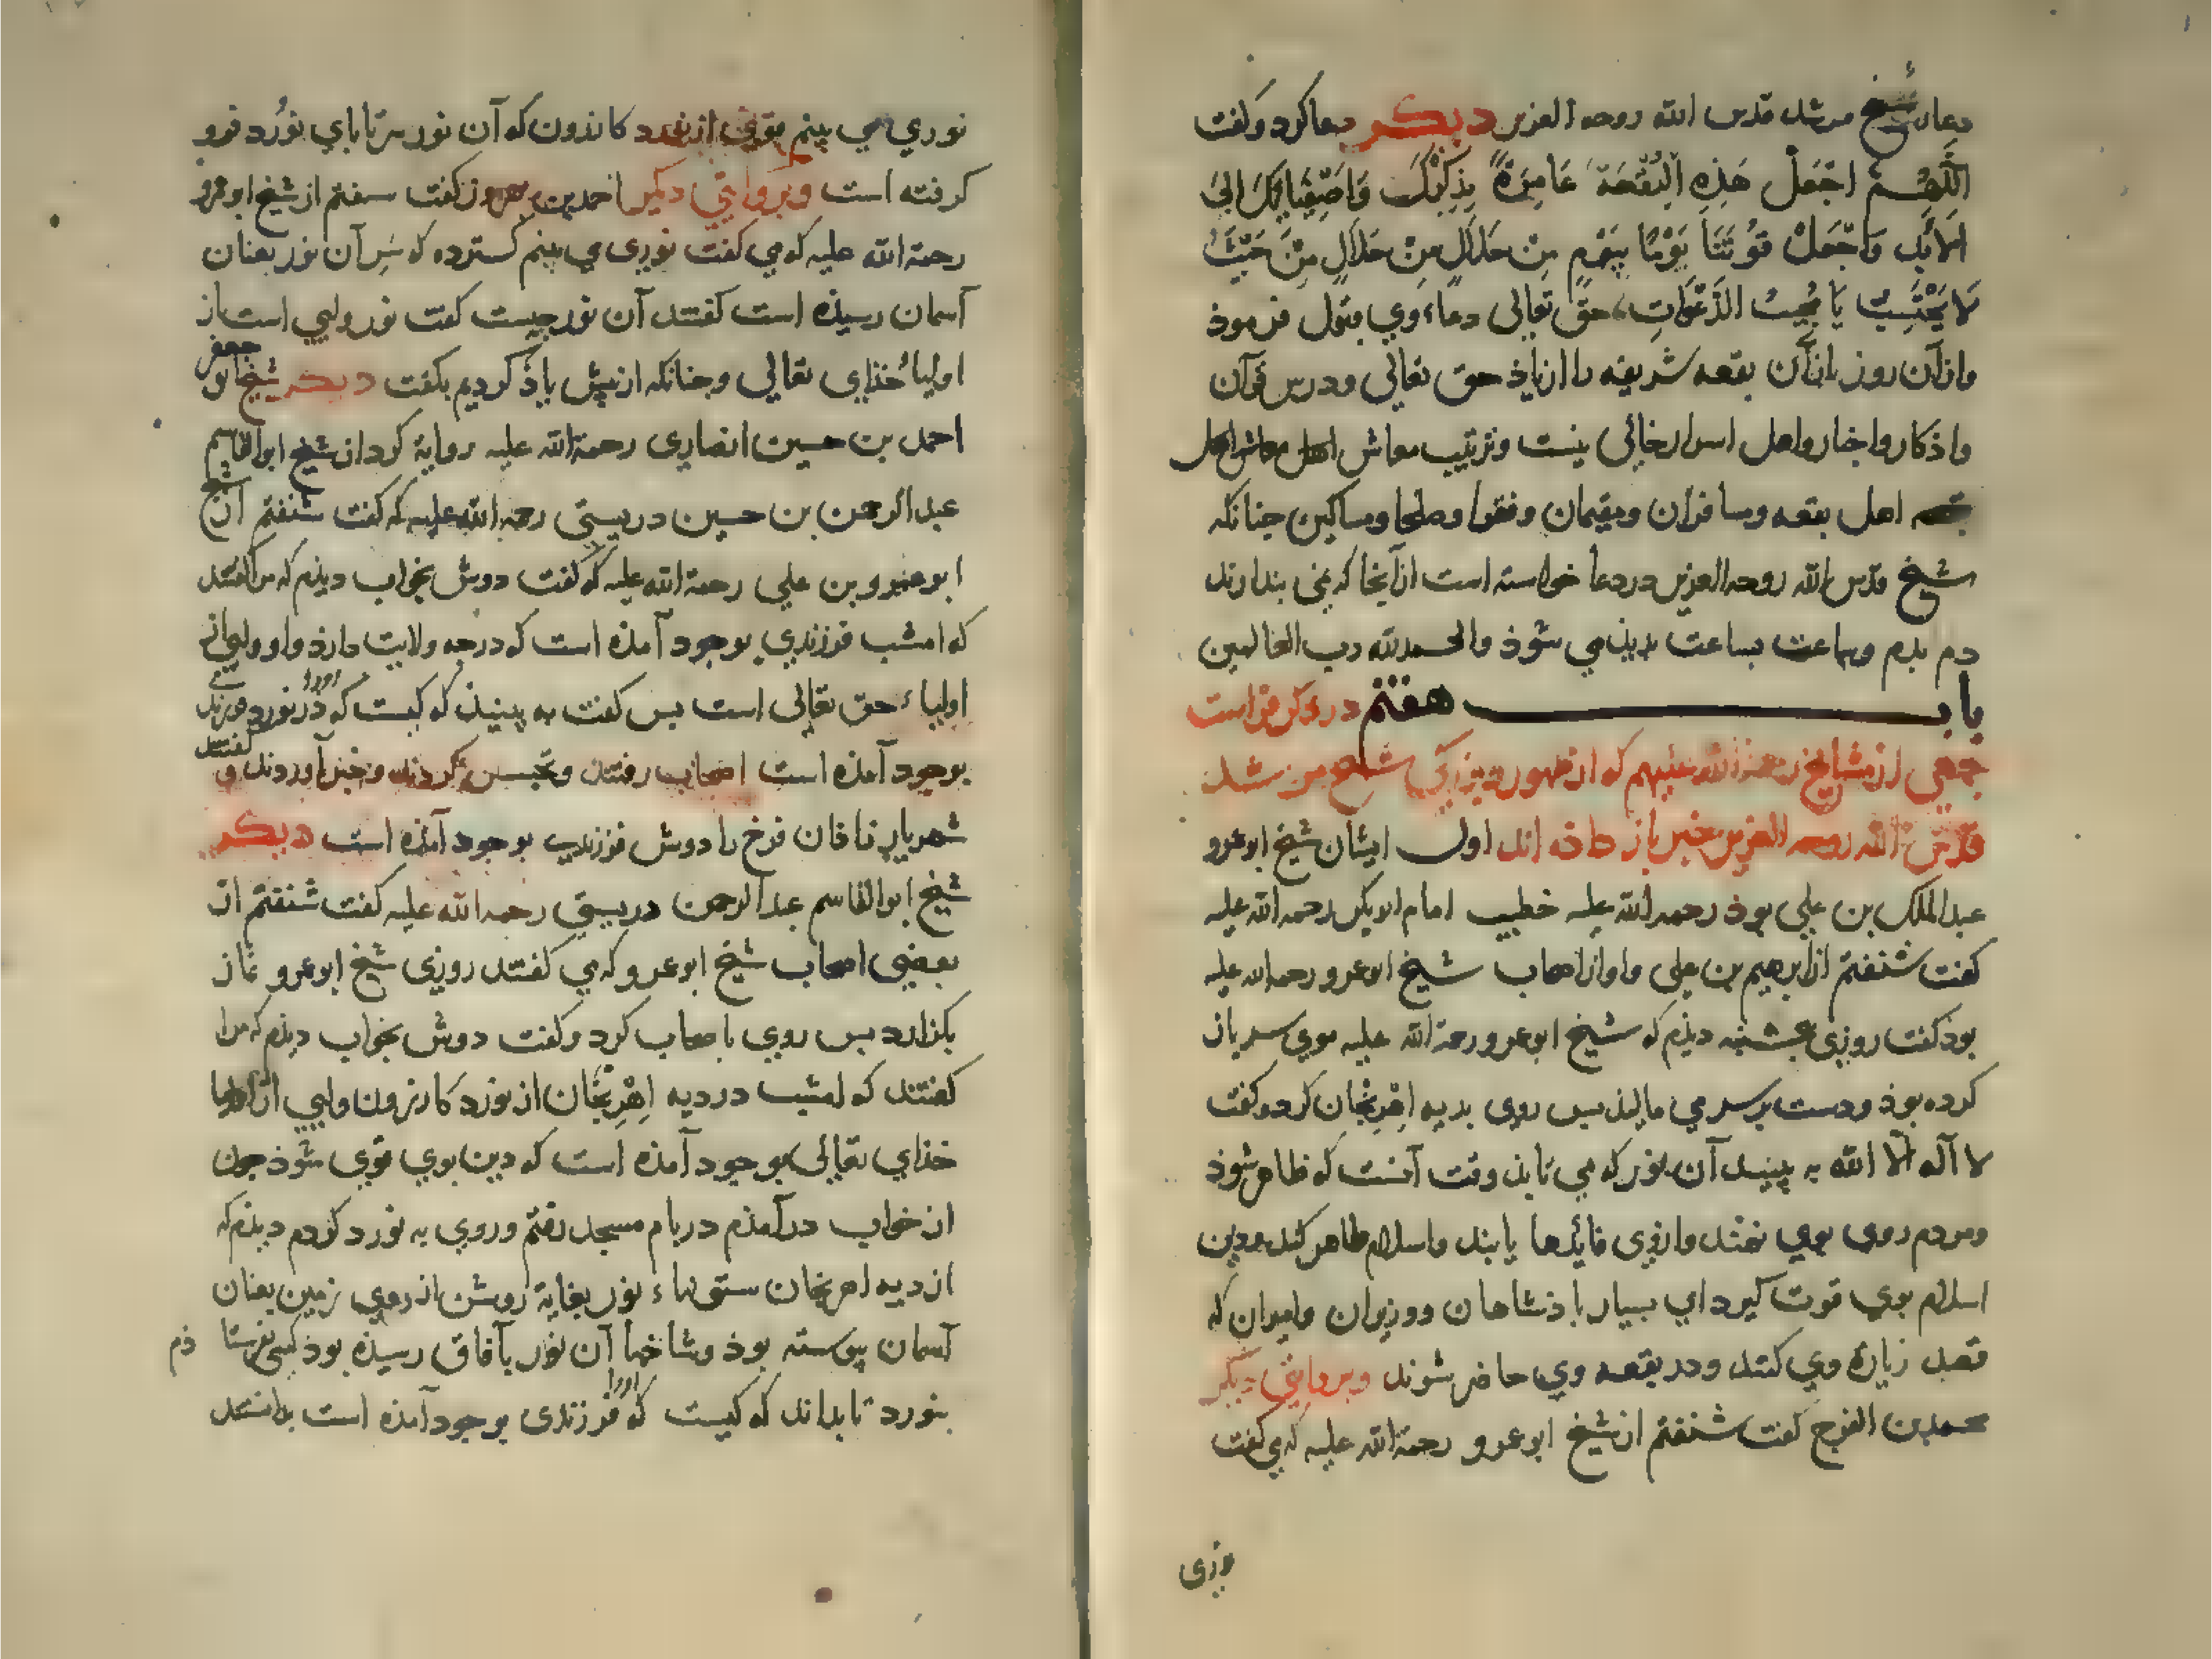 دعاء شیخ مرشد قدس الله روحه العزیز دیکر دعا کرد و کفت
اللَّهُمَّ اجْعَلْ هَذِهِ الْبُقْعَةَ عَامِرَةً بِذِكْرِكَ وَاَصْفِيَائِكَ اِلىَ
الْاَبَدِ وَاجْعَلْ قُوتَنَا يَوْمًا بِيَوْمٍ مِنْ حَلَالٍ مِنْ حَلَالٍ مِنْ حَيْثُ
لَا يَحْتَسِبُ يَا مُجِيبَ الدَّعَوَاتِ، حق تعالی دعاء وی قبول فرموذ
واز آن روز باز آن بقعه شریفه را از یاذ حق تعالی ودرس قرآن
واذکار واخبار واهل اسرار خالی نیست وترتیب معاش اهل
اهل بقعه ومسافران ومقیمان وفقرا وصلحا ومساکین جنانکه
شیخ قدس الله روحه العزیز در دعا خواسته است از آنجا که نمی بندارند
دم بدم وساعت بساعت بدید می شوذ والحمدلله رب العالمین
باب هفتم در ذکر قراست
جمعی از مشایخ رحمة الله علیهم که از ظهور وبزرکی شیخ مرشد
قدس الله روحه العزیز خبر باز داذه اند اول ایشان شیخ ابوعمرو
عبدالملک بن علی بوذ رحمه الله علیه خطیب امام ابوبکر رحمه الله علیه
کفت شنفتم از ابرهیم بن علی واو از اصحاب شیخ ابوعمرو رحمه الله علیه
بوذ کفت روزی بنشسته دیذم که شیخ ابوعمرو رحمة الله علیه موی سر باز
کرده بوذ ودست بر سر می مالیذ بس روی بدیه اِهْرِنْجان کرد وکفت
لا آله الا الله به بینید آن نور که می تابذ وقت آنست که ظاهر شوذ
ومردم روی بوی نهند واز وی فائدها یابند واسلام ظاهر کند ودین
اسلام بوی قوت کیرد ای بسیار باذشاهان ووزیران وامیران که
قصد زیارة وی کنند ودر بقعه وی حاضر شوند وبروایتی دیکر
محمد بن الفرج کفت شنفتم از شیخ ابوعمرو رحمة الله علیه که می کفت
نوری
نوری می بینم از نورد کازرون که آن نور سر تا بای نُورد فرو
کرفته است وبروایتی دیکر احمد بن بهروز کفت شنفتم از شیخ ابوعمرو
رحمة الله علیه که می کفت نوری می بینم کسترده که سَرِ آن نور بعنان
آسمان رسیذه است کفتند آن نور جیست کفت نور ولیی است از
اولیاء خذای تعالی وجنانکه از بیش یاذ کردیم بکفت دیکر شیخ ابو جعفر
احمد بن حسین انصاری رحمة الله علیه روایة کرد از شیخ ابوالقاسم
عبدالرحمن بن حسین دریستی رحمة الله علیه که کفت شنفتم از شیخ
ابوعمرو بن علی رحمة الله علیه که کفت دوش بخواب دیذم که مرا کفتند
که امشب فرزندی بوجود آمذه است که درجه ولایت دارذ واو ولیی از
اولیاء حق تعالی است بس کفت به بینید که کیست که او را در نورد فرزندی
بوجود آمذه است اصحاب رفتند وتجسس کردند وخبر آوردند وکفتند
شهریار زاذان فرخ را دوش فرزندی بوجود آمذه است دیکر
شیخ ابوالقاسم عبدالرحمن دریستی رحمه الله علیه کفت شنفتم از
بعضی اصحاب شیخ ابوعمرو که می کفتند روزی شیخ ابوعمرو نماز
بکزارد بس روی باصحاب کرد وکفت دوش بخواب دیذم که مرا
کفتند که امشب در دیه اِهْرِنْجَان از نورد کازرون ولیی از اولیا
خذای تعالی بوجود آمذه است که دین بوی قوی شوذ جون
از خواب درآمذم در بام مسجد رفتم وروی به نورد کردم دیذم که
از دیه اهرنجان ستونهاء نور بغایة روشن از روی زمین بعنان
آسمان بیوسته بوذ وشاخها آن نور بآفاق رسیذه بوذ کسی بفرستا ذم
بنورد تا بداند که کیست که او را فرزندی بوجود آمذه است بدانستند